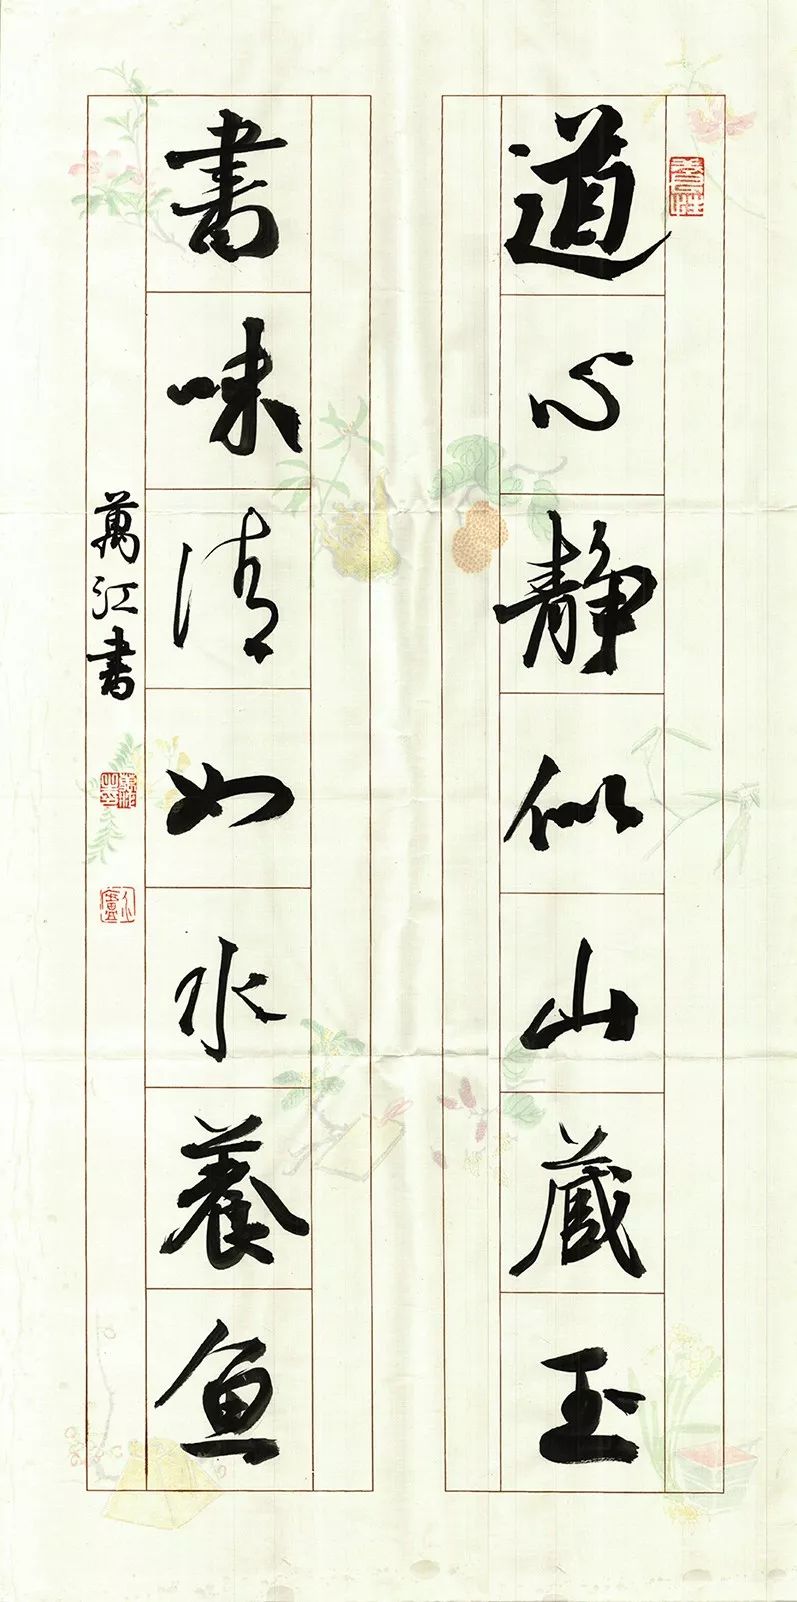 道心静似山蔵玉
書味清如水養魚
萬江書
養性